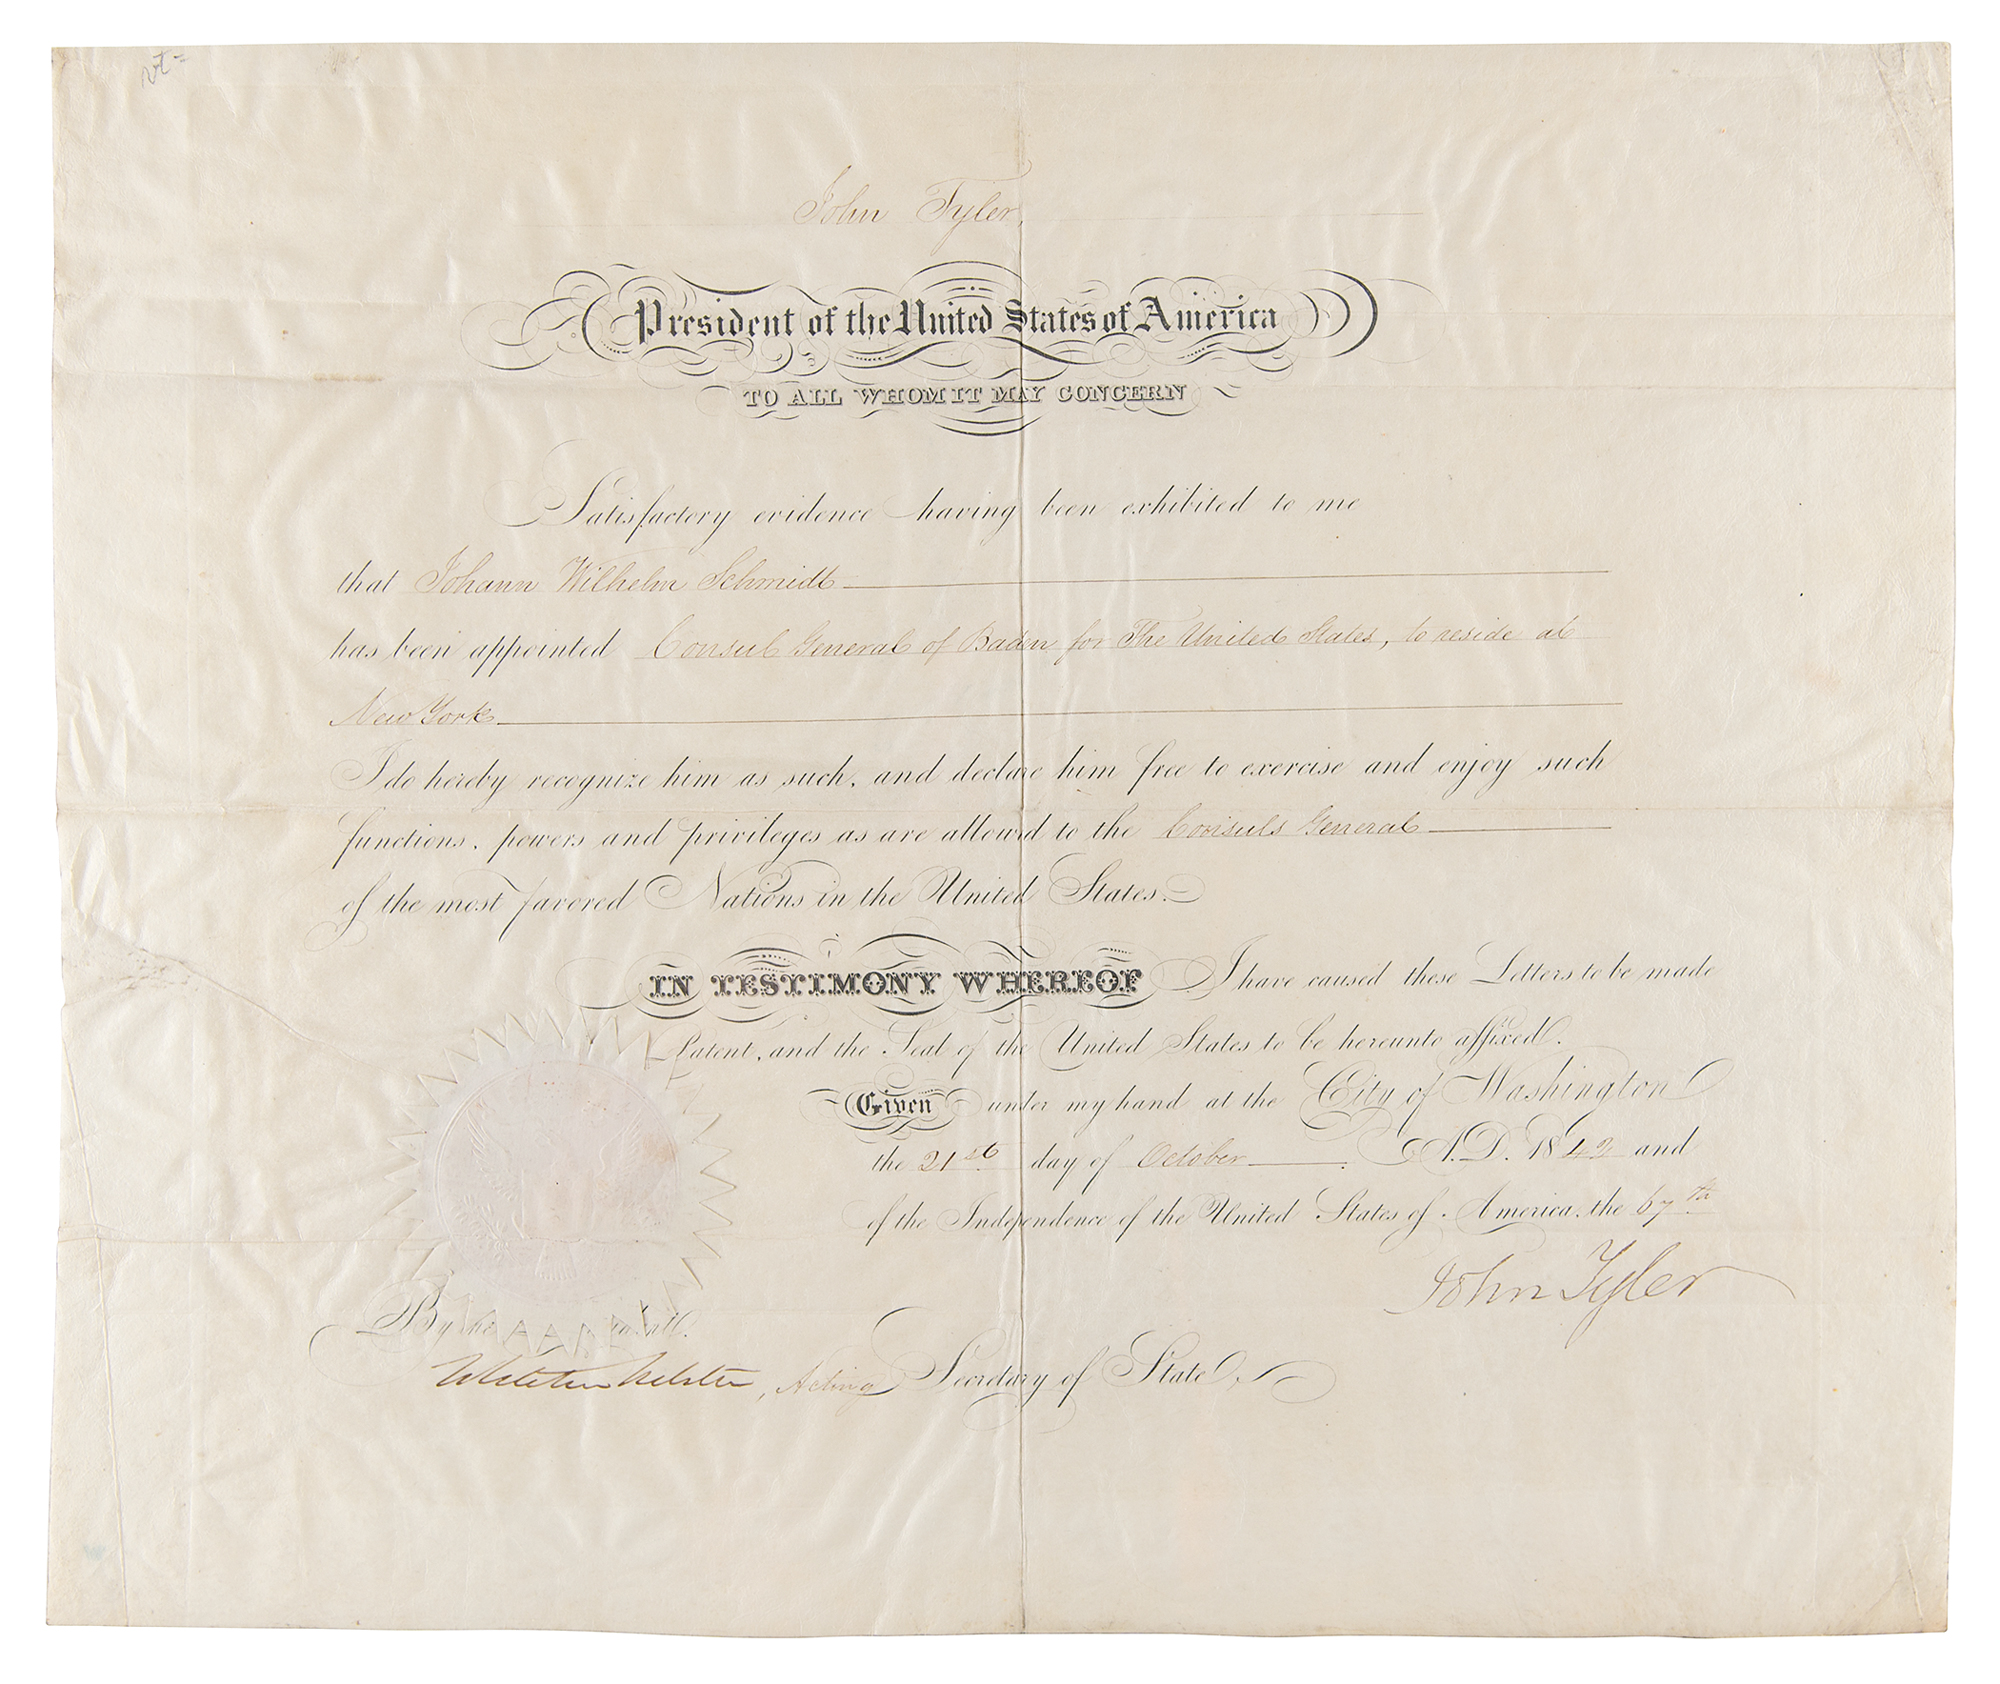 John Tyler,
President of the United States of America
TO ALL WHOM IT MAY CONCERN
Satisfactory evidence having been exhibited to me
that Johann Wilhelm Schmidt
has been appointed Consul General of Baden for The United States, to reside at
New York
I do hereby recognize him as such, and declare him free to exercise and enjoy such
functions, powers and privileges as are allowed to the Consuls General
of the most favored Nations in the United States.
IN TESTIMONY WHEREOF I have caused these Letters to be made
Patent, and the Seal of the United States to be hereunto affixed.
Given under my hand at the City of Washington
the 21st day of October A.D. 1842 and
of the Independence of the United States of America, the 67th
John Tyler
By the
Webster, Acting Secretary of State,